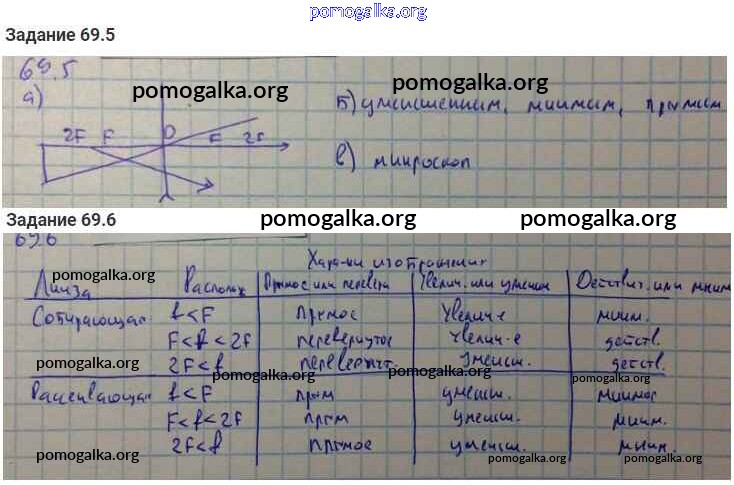 pomogalka.org
Задание 69.5
69.5
pomogalka.org pomogalka.org
а) Б) уменьшенным, мнимым, прямым
2F F O F 2F
в) микроскоп
Задание 69.6 pomogalka.org pomogalka.org
69.6
Хар-ки изображения
pomogalka.org
Линза Располож Прямое или переверн Увелич. или уменьш Действит. или мним
Собирающая f<F прямое увелич-е мним.
F<f<2F перевернутое увелич-е действ.
pomogalka.org 2F<f перевернут. уменьш. действ. pomogalka.org
pomogalka.org pomogalka.org
Рассеивающая f<F прям уменьш. мнимое
F<f<2F прям уменьш. мним.
2F<f прямое уменьш. мним.
pomogalka.org pomogalka.org pomogalka.org